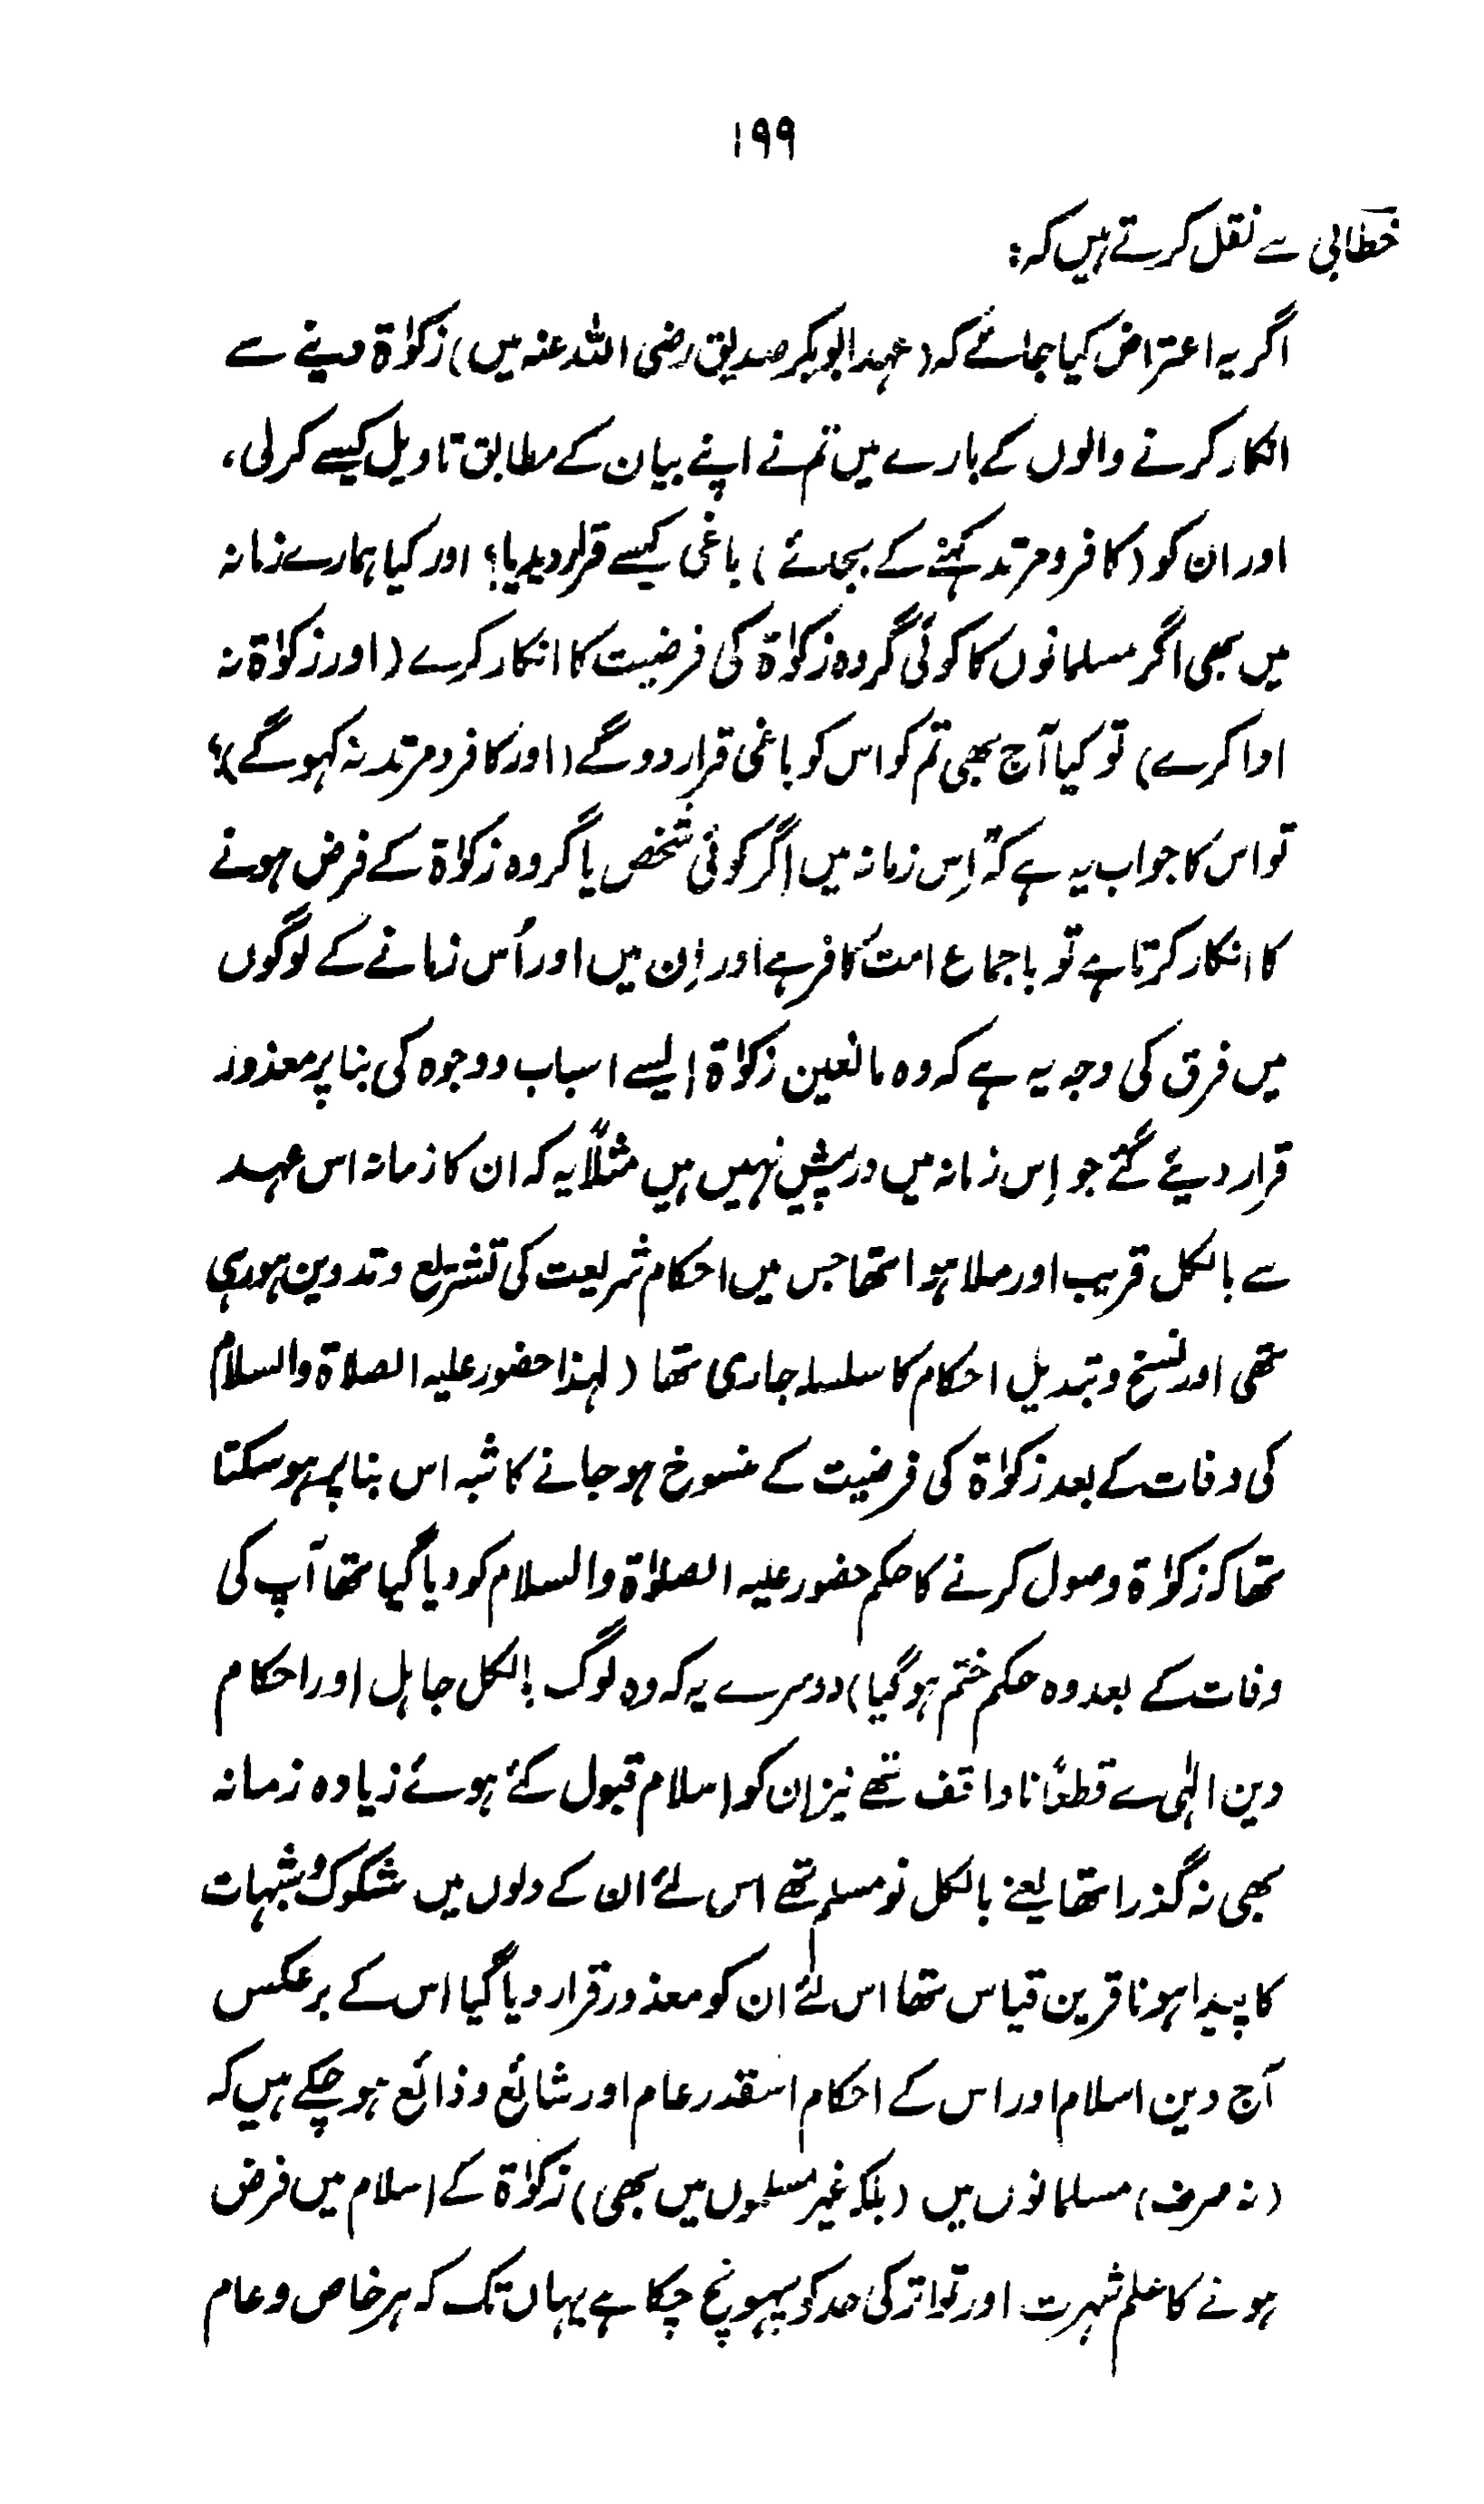 ۱۹۹
خطابی سے نقل کرتے ہیں کہ:
اگر یہ اعتراض کیا جائے کہ (عہد ابوبکر صدیق رضی اللہ عنہ میں) زکوٰۃ دینے سے
انکار کرنے والوں کے بارے میں تم نے اپنے بیان کے مطابق تاویل کیسے کر لی،
اور ان کو (کافر و مرتد کہنے کے بجائے) باغی کیسے قرار دیدیا؟ اور کیا ہمارے زمانہ
میں بھی اگر مسلمانوں کا کوئی گروہ زکوٰۃ کی فرضیت کا انکار کرے (اور زکوٰۃ نہ
ادا کرے) تو کیا آج بھی تم کو اس کو باغی قرار دو گے (اور کافر و مرتد نہ کہو گے)؟
تو اس کا جواب یہ ہے کہ اِس زمانہ میں اگر کوئی شخص یا گروہ زکوٰۃ کے فرض ہونے
کا انکار کرتا ہے تو باجماع امت کافر ہے اور اِن میں اور اُس زمانے کے لوگوں
میں فرق کی وجہ یہ ہے کہ وہ مانعین زکوٰۃ ایسے اسباب و وجوہ کی بنا پر معذور
قرار دیئے گئے جو اِس زمانہ میں درپیش نہیں ہیں مثلاً یہ کہ ان کا زمانہ اس عہد
سے بالکل قریب اور ملا ہوا تھا جس میں احکام شریعت کی تشریع و تدوین ہو رہی
تھی اور نسخ و تبدیل احکام کا سلسلہ جاری تھا (لہذا حضور علیہ الصلاۃ والسلام
کی وفات کے بعد زکوٰۃ کی فرضیت کے منسوخ ہو جانے کا شبہ اس بنا پر ہو سکتا
تھا کہ زکوٰۃ وصول کرنے کا حکم حضور علیہ الصلاۃ والسلام کو دیا گیا تھا آپ کی
وفات کے بعد وہ حکم ختم ہو گیا) دوسرے یہ کہ وہ لوگ بالکل جاہل اور احکام
دین الٰہی سے قطعًا ناواقف تھے نیز ان کو اسلام قبول کئے ہوئے زیادہ زمانہ
بھی نہ گذرا تھا یعنے بالکل نو مسلم تھے اس لئے ان کے دلوں میں شکوک و شبہات
کا پیدا ہونا قرین قیاس تھا اس لئے ان کو معذور قرار دیا گیا اس کے برعکس
آج دین اسلام اور اس کے احکام اسقدر عام اور شائع و ذائع ہو چکے ہیں کہ
(نہ صرف) مسلمانوں میں (بلکہ غیر مسلموں میں بھی) زکوٰۃ کے اسلام میں فرض
ہونے کا علم شہرت اور تواتر کی حد کو پہونچ چکا ہے یہاں تک کہ ہر خاص و عام